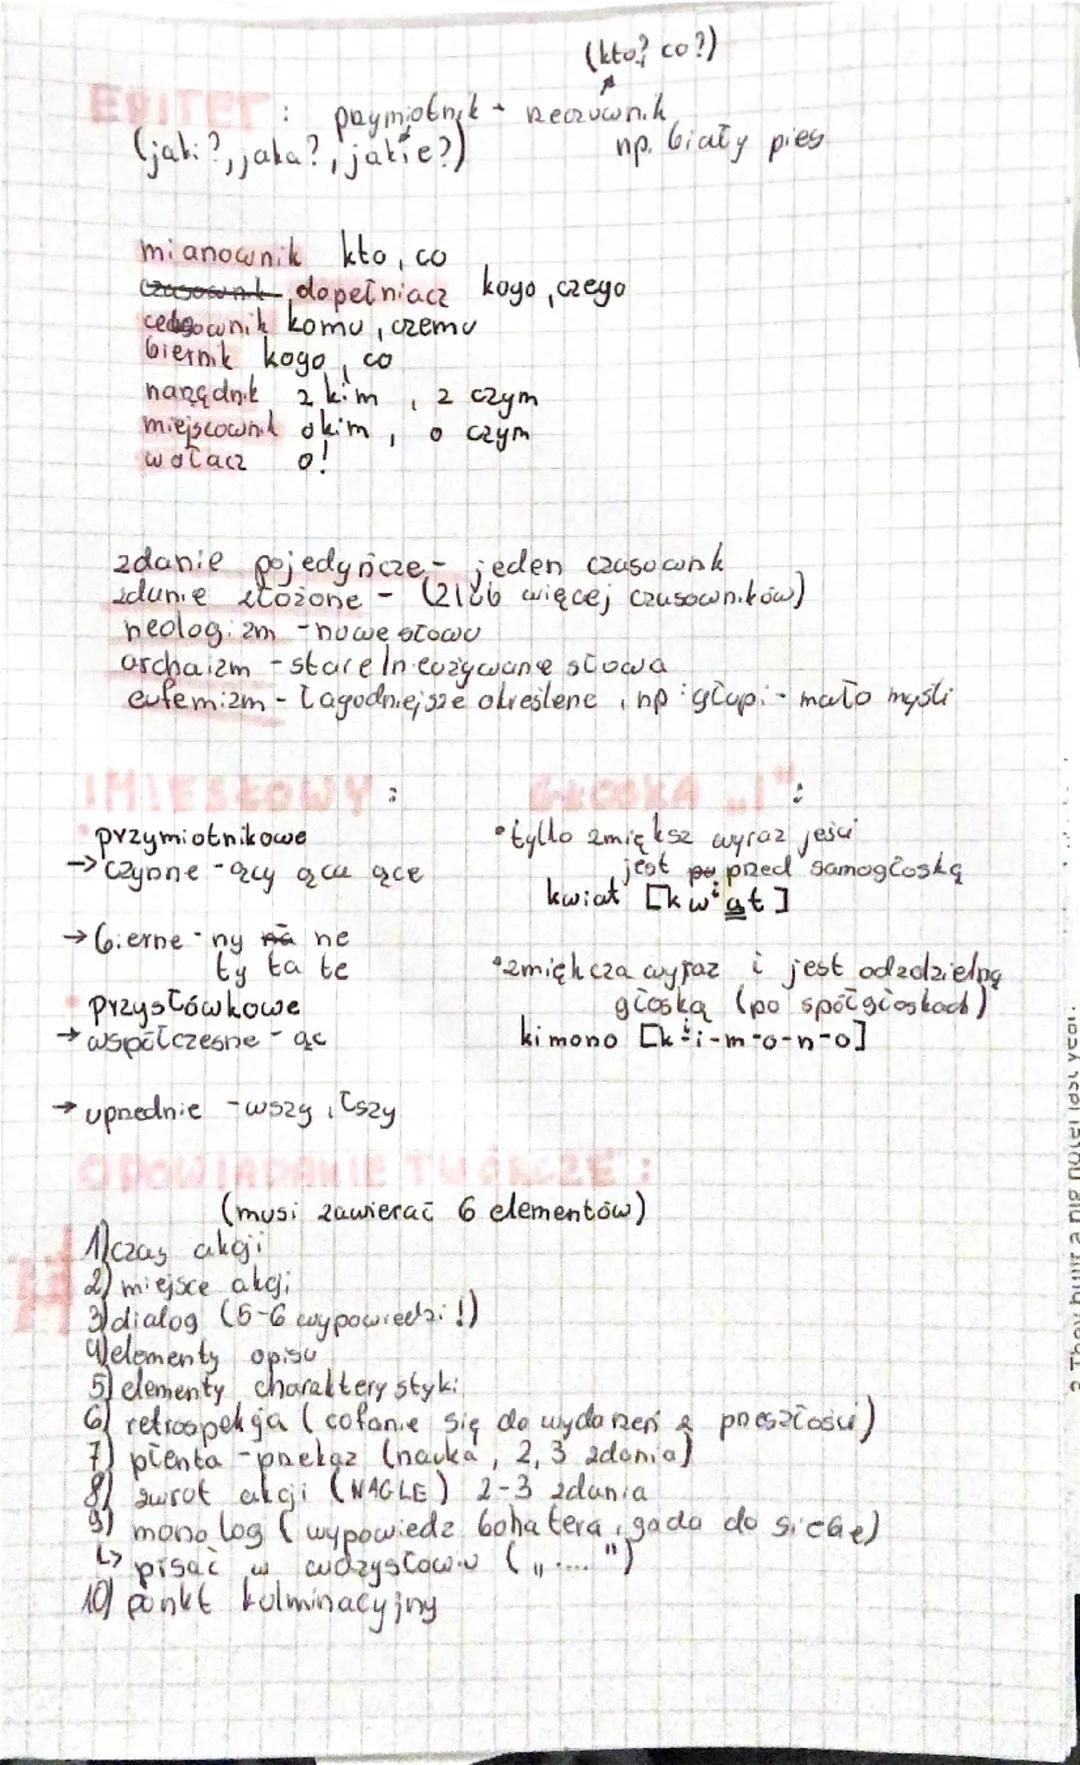 (kto? co?)
EPITET: przymiotnik + rzeczownik
(jaki?, jaka?, jakie?) np. biały pies
mianownik kto, co
czasownik dopełniacz kogo, czego
celownik komu, czemu
biernik kogo, co
narzędnik z kim, z czym
miejscownik o kim, o czym
wołacz o!
zdanie pojedyńcze - jeden czasownik
zdanie złożone - (2 lub więcej czasowników)
neologizm - nowe słowo
archaizm - stare/nieużywane słowa
eufemizm - łagodniejsze określene, np: głupi - mało myśli
IMIESŁOWY:
• przymiotnikowe
→ czynne - ący ąca ące
→ bierne - ny na ne
ty ta te
• przysłówkowe
→ współczesne - ąc
→ uprzednie - wszy, łszy
GŁOSKA „I":
• tylko zmiększ wyraz jeśli
jest po przed samogłoską
kwiat [k wⁱ a t]
• zmiękcza wyraz i jest oddzielną
głoską (po spółgłoskach)
kimono [kⁱ-i-m-o-n-o]
OPOWIADANIE TWÓRCZE:
(musi zawierać 6 elementów)
1) czas akcji
2) miejsce akcji
3) dialog (5-6 wypowiedzi!)
4) elementy opisu
5) elementy charakterystyki
6) retrospekcja (cofanie się do wydarzeń z przeszłości)
7) płenta - przekaz (nauka, 2, 3 zdania)
8) zwrot akcji (NAGLE) 2-3 zdania
9) monolog (wypowiedz bohatera, gada do siebie)
↳ pisać w cudzysłowiu („....")
10) punkt kulminacyjny
2 They built a big hotel last year.